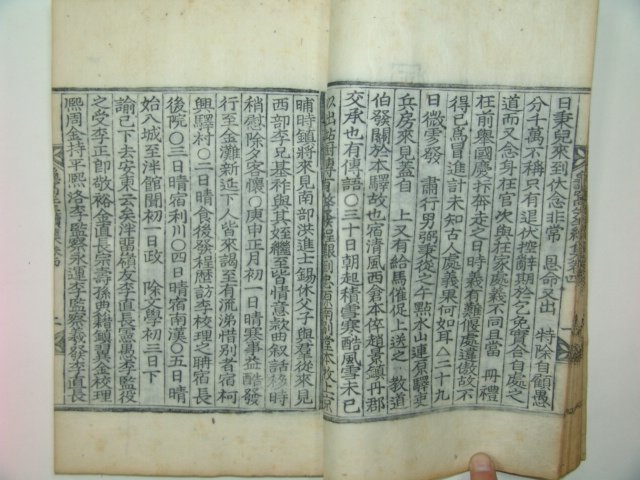 日秉兒來到伏念非常　恩命又出　特除自顧愚
分千萬不稱只有退伏控辭期於乞免實合自處之
道而又念身在官次與在家處義不同且當　丹禮
在前舉國慶抃奔走之日時義有難偃處違傲故不
得已爲冒進計未知古人處義果何如耳△二十九
日微雪發　肅行男弼秉從之十點水山連原驛吏
兵房來見蓋自　上又有給馬催促上送之　敎道
伯發關於本驛故也宿淸風西倉本倅趙景鎭丹郡
交承也有傳語○三十日朝起積雪寒酷風雪未已
晡時鎭將來見南部洪進士錫休父子與羣從來見
西部李兄基祚與其姪繼至皆情意款曲叙話移時
稍慰除夕客懷○庚申正月初一日晴寒事益酷發
行至金灘新延下人皆來謁至有流涕惜別者宿柯
興驛村○二日晴食後發程歷訪李校理之聃宿長
後院○三日晴宿利川○四日晴宿南漢○五日晴
始入城至泮館聞初一日政　除文學初三日下
諭已下去安東云矣泮罾硪友李直長憲萬李監役
之受李正郞敬裕金直長宗壽孫典籍鎭翼金校理
熙周金持平熙洛李監察永運李監察義發李直長